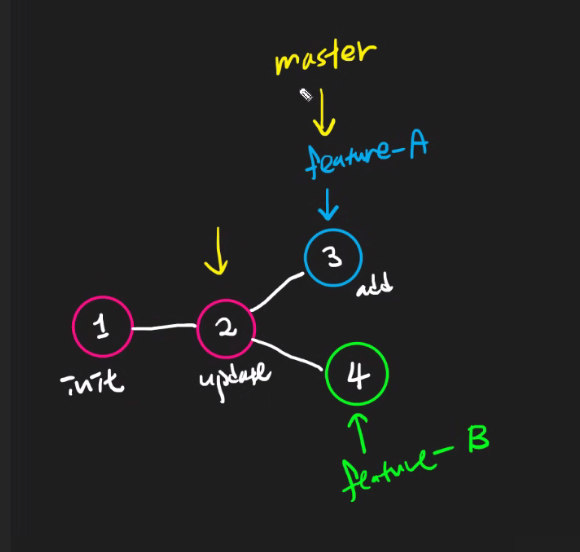 master
feature-A
3
add
1
2
init
update
4
feature-B